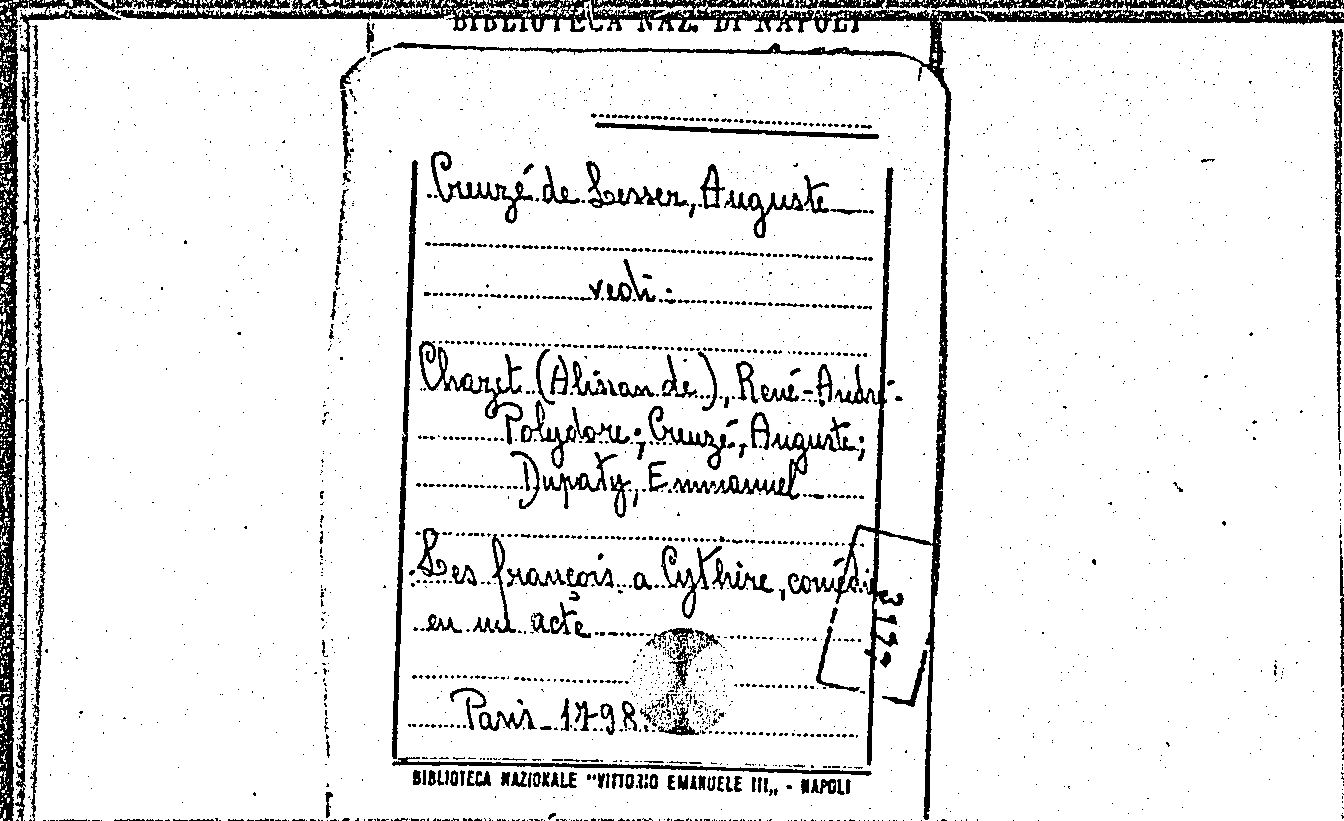 BIBLIOTECA NAZ. DI NAPOLI
Creuzé de Lesser, Auguste
vedi:
Chazet (Alissan de), René-André-
Polydore; Creuzé, Auguste;
Dupaty, Emmanuel
Les françois a Cythère, comédie
en un acte
Paris 1798.
BIBLIOTECA NAZIONALE "VITTORIO EMANUELE III„ - NAPOLI